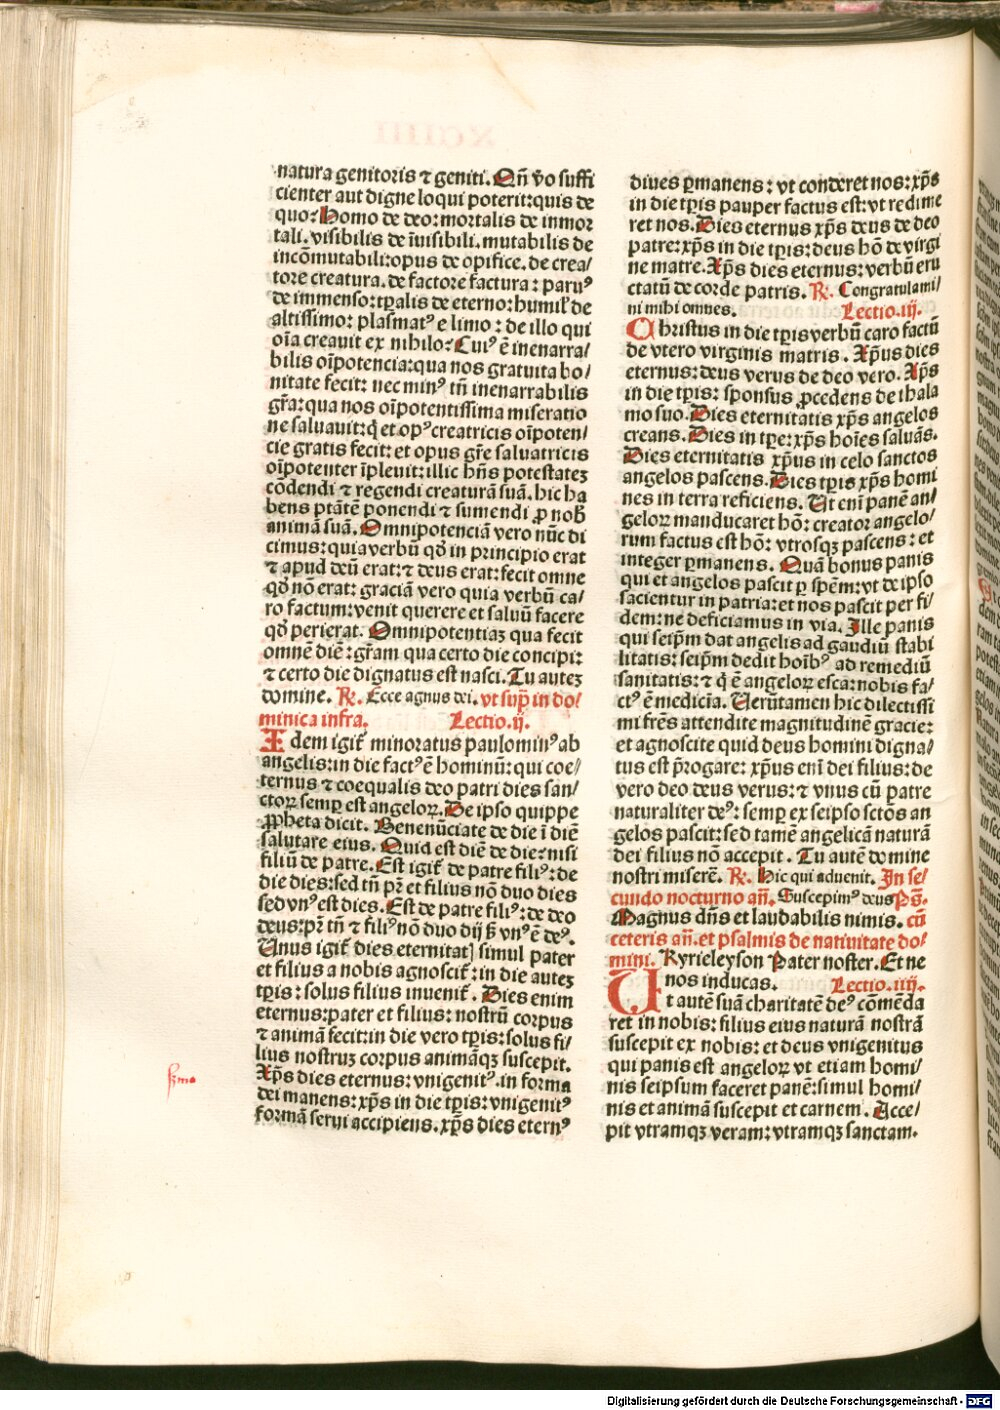 natura genitoris ⁊ geniti. Qn̄ v̄o suffi
cienter aut digne loqui poterit: quis de
quo? Homo de deo: mortalis de inmor
tali. visibilis de īuisibili. mutabilis de
incōmutabili: opus de opifice. de crea/
tore creatura. de factore factura: paruꝰ
de immenso: tp̄alis de eterno: humil' de
altissimo: plasmatꝰ e limo: de illo qui
oīa creauit ex nihilo? Cuiꝰ ē inenarra/
bilis oīpotencia: qua nos gratuita bo/
nitate fecit: nec minꝰ tn̄ inenarrabilis
gr̄a: qua nos oīpotentissima miseratio
ne saluauit: q̄ et opꝰ creatricis oīpoten/
cie gratis fecit: et opus gr̄e saluatricis
oīpotenter īpleuit: illic hn̄s potestatez
cōdendi ⁊ regendi creaturā suā. hic ha
bens ptātē ponendi ⁊ sumendi ꝓ nob̄
animā suā. Omnipotenciā vero nūc di
cimus: quia verbū qđ in principio erat
⁊ apud deū erat: ⁊ deus erat: fecit omne
qđ nō erat: graciā vero quia verbū ca/
ro factum: venit querere et saluū facere
qđ perierat. Omnipotentiaz qua fecit
omnē diē: gr̄am qua certo die concipi:
⁊ certo die dignatus est nasci. Tu autez
domine. ℟. Ecce agnus dei. vt sup̄ in do/
minica infra. Lectio.ij.
Idem igit' minoratus paulominꝰ ab
angelis: in die factꝰ ē hominū: qui coe/
ternus ⁊ coequalis deo patri dies san/
ctoꝝ semp̄ est angeloꝝ. De ipso quippe
ꝓpheta dicit. Benenūciate de die ī diē
salutare eius. Quid est diē de die? nisi
filiū de patre. Est igit' de patre filiꝰ: de
die dies: sed tn̄ pr̄ et filius nō duo dies
sed vnꝰ est dies. Est de patre filiꝰ: de deo
deus: pr̄ tn̄ ⁊ filiꝰ nō duo dij s̄ vnꝰ ē deꝰ.
Unus igit' dies eternitatꝭ simul pater
et filius a nobis agnoscit': in die autez
tp̄is: solus filius inuenit'. Dies enim
eternus: pater et filius: nostrū corpus
⁊ animā fecit: in die vero tp̄is: solus fi/
lius nostruz corpus animāqꝫ suscepit.
Xp̄s dies eternus: vnigenitꝰ. in forma
dei manens: xp̄s in die tp̄is: vnigenitꝰ
formā serui accipiens. xp̄s dies eternꝰ
diues ꝑmanens: vt conderet nos: xp̄s
in die tp̄is pauper factus est: vt redime
ret nos. Dies eternus xp̄s deus de deo
patre: xp̄s in die tp̄is: deus hō de virgi
ne matre. Xp̄s dies eternus: verbū eru
ctatū de corde patris. ℟. Congratulami/
ni mihi omnes. Lectio.iij.
Christus in die tp̄is verbū caro factū
de vtero virginis matris. Xp̄us dies
eternus: deus verus de deo vero. Xp̄s
in die tp̄is: sponsus ꝓcedens de thala
mo suo. Dies eternitatis xp̄s angelos
creans. Dies in tp̄e: xp̄s hoīes saluās.
Dies eternitatis xp̄us in celo sanctos
angelos pascens. Dies tp̄is xp̄s homi
nes in terra reficiens. Ut eni panē an/
geloꝝ manducaret hō: creator angelo/
rum factus est hō: vtrosqꝫ pascens: et
integer ꝑmanens. Quā bonus panis
qui et angelos pascit ꝑ spēm: vt de ipso
sacientur in patria: et nos pascit per fi/
dem: ne deficiamus in via. Ille panis
qui seip̄m dat angelis ad gaudiū stabi
litatis: seip̄m dedit hoībꝰ ad remediū
sanitatis: ⁊ q̄ ē angeloꝝ esca: nobis fa/
ctꝰ ē medicīa. Uerūtamen hic dilectissi
mi fr̄es attendite magnitudinē gracie:
et agnoscite quid deus homini digna/
tus est p̄rogare: xp̄us enī dei filius: de
vero deo deus verus: ⁊ vnus cū patre
naturaliter deꝰ: semp̄ ex seipso sctōs an
gelos pascit: sed tamē angelicā naturā
dei filius nō accepit. Tu autē domine
nostri miserē. ℟. Hic qui aduenit. In se/
cundo nocturno añ. Suscepimꝰ deus Ps̄.
Magnus dn̄s et laudabilis nimis. cū
ceteris añ. et psalmis de natiuitate do/
mini. Kyrieleyson Pater noster. Et ne
nos inducas. Lectio.iiij.
Ut autē suā charitatē deꝰ cōmēda
ret in nobis: filius eius naturā nostrā
suscepit ex nobis: et deus vnigenitus
qui panis est angeloꝝ vt etiam homi/
nis seipsum faceret panē: simul homi/
nis et animā suscepit et carnem. Acce/
pit vtramqꝫ veram: vtramqꝫ sanctam.
Digitalisierung gefördert durch die Deutsche Forschungsgemeinschaft - DFG